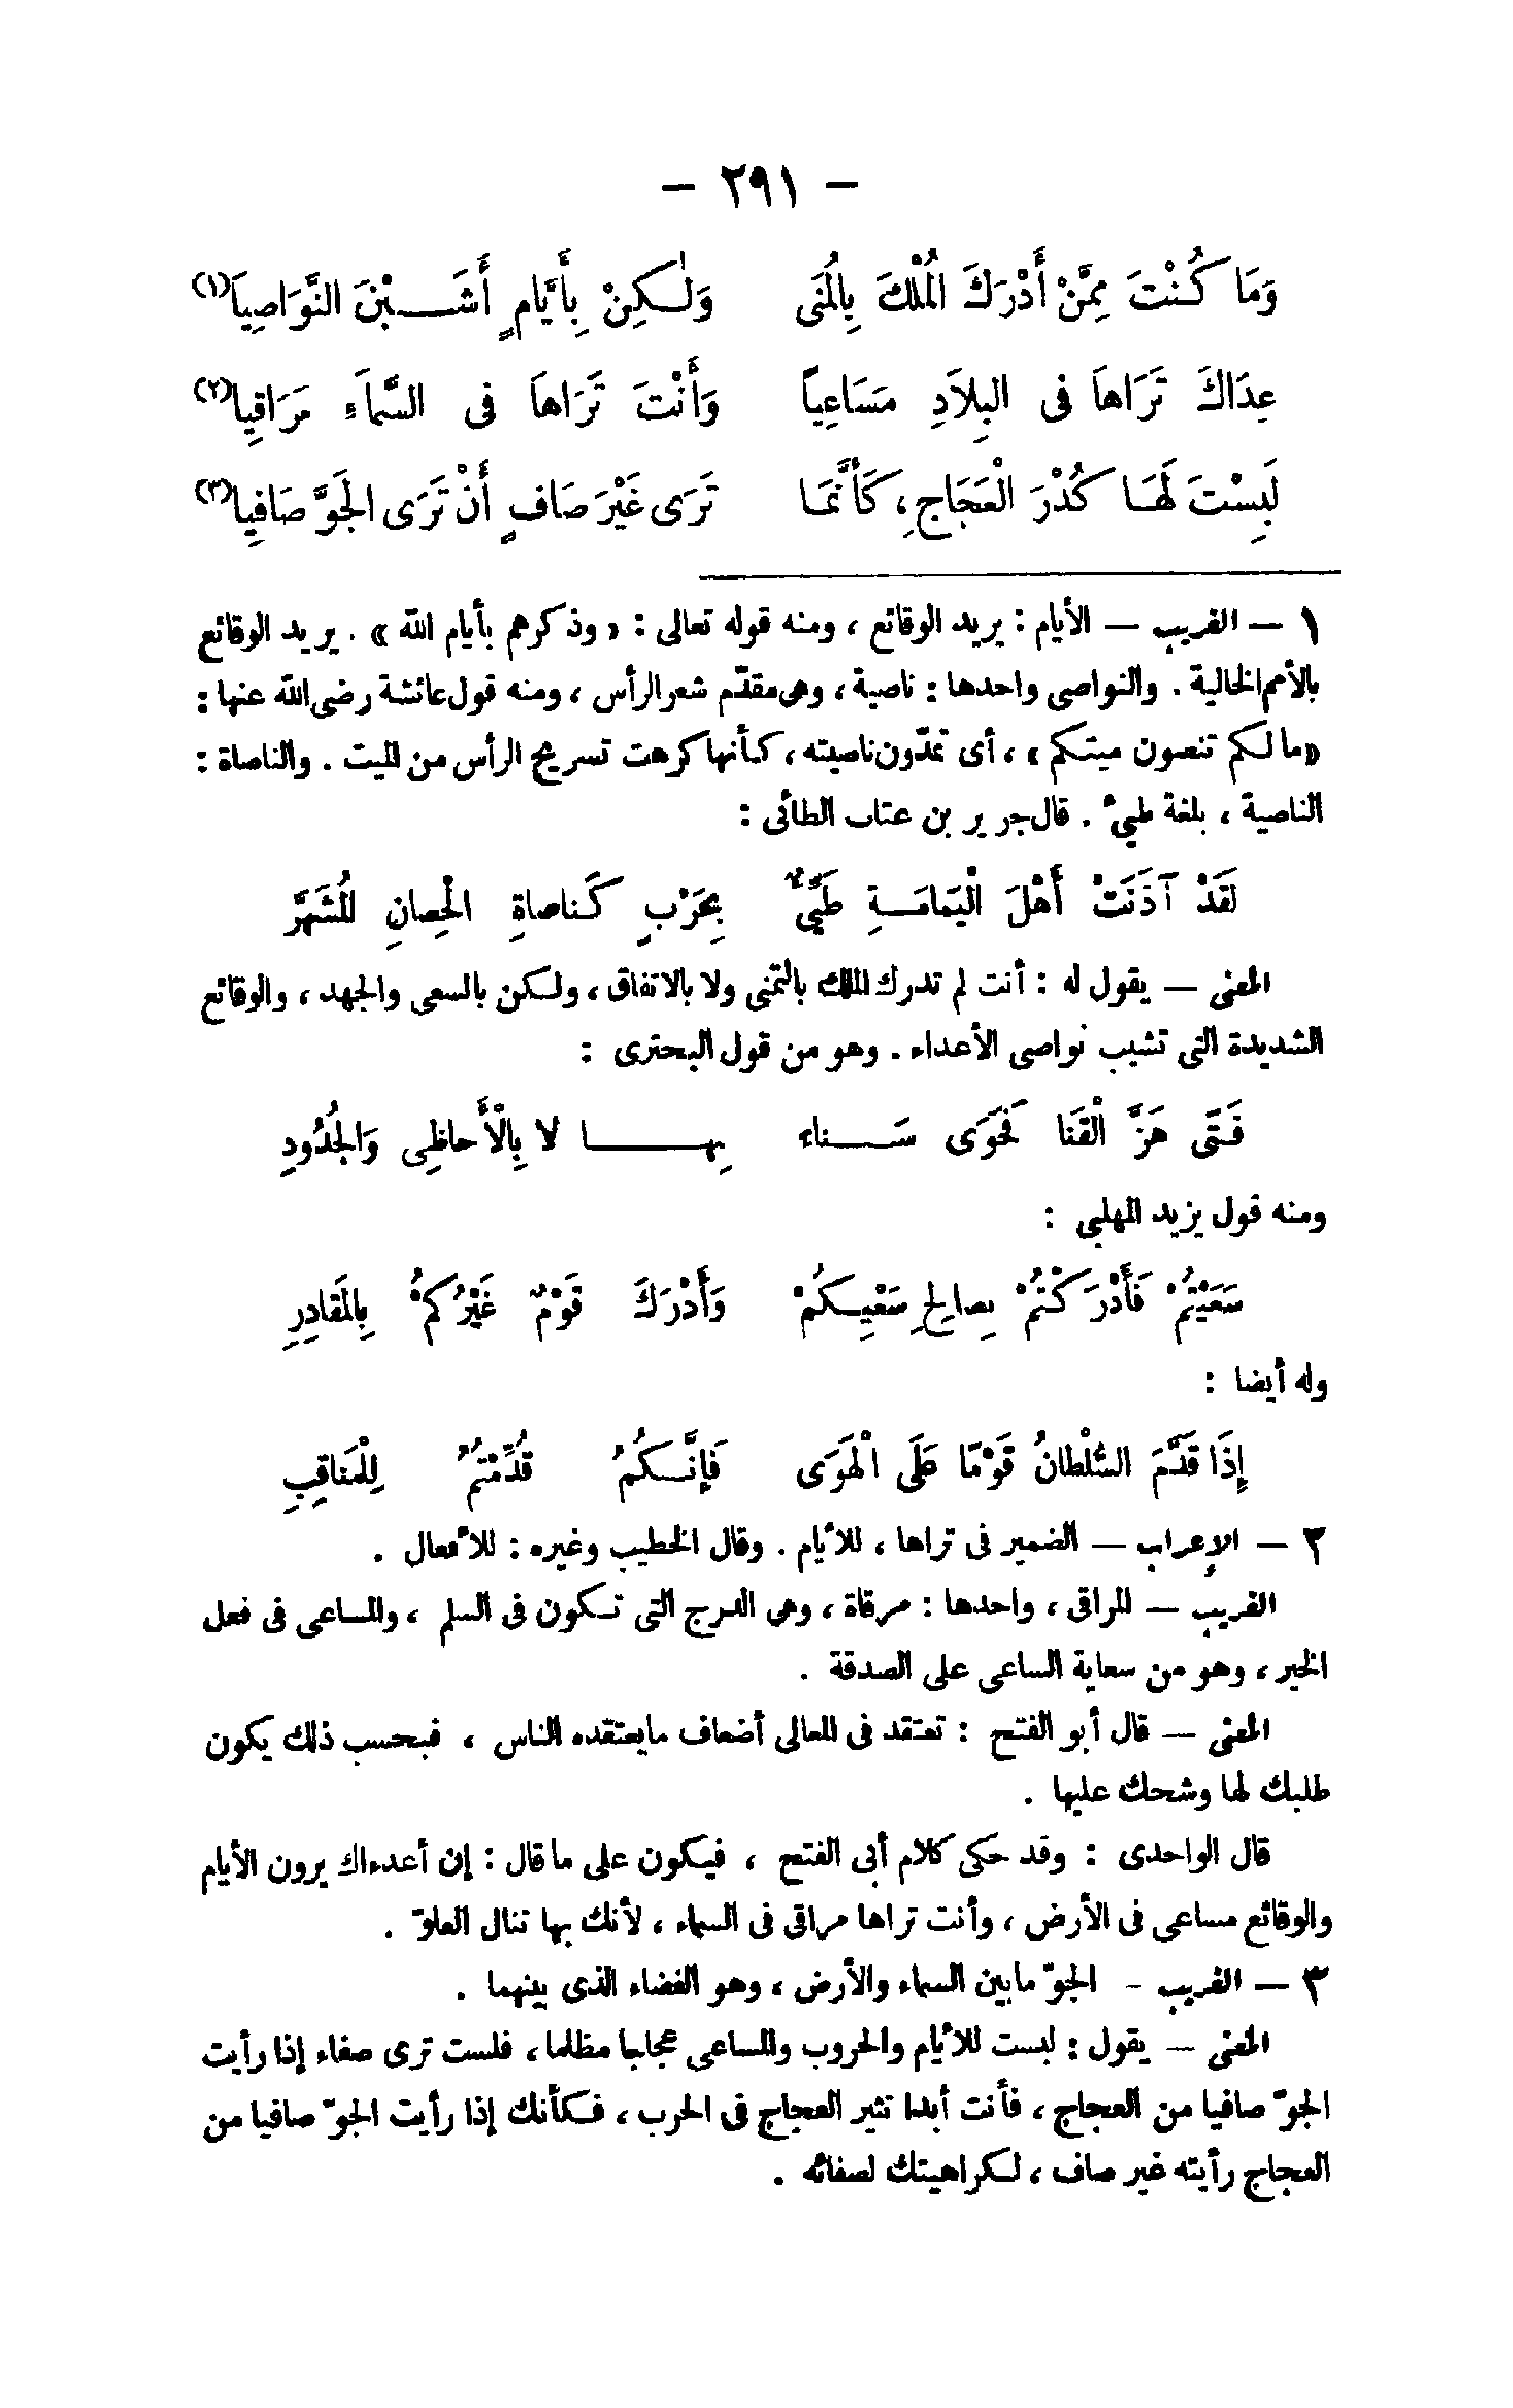 — ٢٩١ —
وَمَا كُنْتَ مِمَّنْ أَدْرَكَ الْمُلْكَ بِالْمُنَى وَلٰكِنْ بِأَيَّامٍ أَشَبْنَ النَّوَاصِيَا(١)
عِدَاكَ تَرَاهَا فى البِلاَدِ مَسَاعِياً وَأَنْتَ تَرَاهَا فى السَّمَاءِ مَرَاقِيا(٢)
لَبِسْتَ لَهَا كُدْرَ الْعَجَاجِ، كَأَنَّمَا تَرَى غَيْرَ صَافٍ أَنْ تَرَى الْجَوَّ صَافِيا(٣)
١ — الغريب — الأيام : يريد الوقائع ، ومنه قوله تعالى : « وذكرهم بأيام الله » . يريد الوقائع
بالأمم الخالية . والنواصى واحدها : ناصية ، وهى مقدّم شعر الرأس ، ومنه قول عائشة رضى الله عنها :
« ما لكم تنصون ميتكم » ، أى تمدّون ناصيته ، كأنها كرهت تسريح الرأس من الميت . والناصاة :
الناصية ، بلغة طيئ . قال جرير بن عتاب الطائى :
لَقَدْ آذَنَتْ أَهْلَ الْيَمَامَةِ طَيِّئٌ بِحَرْبٍ كَنَاصَاةِ الْحِصانِ الْمُشَهَّرِ
المعنى — يقول له : أنت لم تدرك الملك بالتمنى ولا بالاتفاق ، ولكن بالسعى والجهد ، والوقائع
الشديدة التى تشيب نواصى الأعداء . وهو من قول البحترى :
فَتًى هَزَّ الْقَنَا فَحَوَى سَناء بِها لا بِالْأَحاظِى وَالْجُدُودِ
ومنه قول يزيد المهلبى :
سَعَيْتُمْ فَأَدْرَكْتُمْ بِصالِحِ سَعْيِكُمْ وَأَدْرَكَ قَوْمٌ غَيْرُكُمْ بِالمَقادِرِ
وله أيضا :
إِذَا قَدَّمَ السُّلْطانُ قَوْمًا عَلَى الْهَوَى فَإِنَّكُمُ قُدِّمْتُمُ لِلْمَناقِبِ
٢ — الإعراب — الضمير فى تراها ، للأيام . وقال الخطيب وغيره : للأفعال .
الغريب — المراقى ، واحدها : مرقاة ، وهى الدرج التى تكون فى السلم ، والمساعى فى فعل
الخير ، وهو من سعاية الساعى على الصدقة .
المعنى — قال أبو الفتح : تعتقد فى المعالى أضعاف مايعتقده الناس ، فبحسب ذلك يكون
طلبك لها وشحك عليها .
قال الواحدى : وقد حكى كلام أبى الفتح ، فيكون على ما قال : إن أعداءك يرون الأيام
والوقائع مساعى فى الأرض ، وأنت تراها مراقى فى السماء ، لأنك بها تنال العلوّ .
٣ — الغريب - الجوّ مابين السماء والأرض ، وهو الفضاء الذى بينهما .
المعنى — يقول : لبست للأيام والحروب والمساعى عجاجا مظلما ، فلست ترى صفاء إذا رأيت
الجوّ صافيا من العجاج ، فأنت أبدا تثير العجاج فى الحرب ، فكأنك إذا رأيت الجوّ صافيا من
العجاج رأيته غير صاف ، لكراهيتك لصفائه .